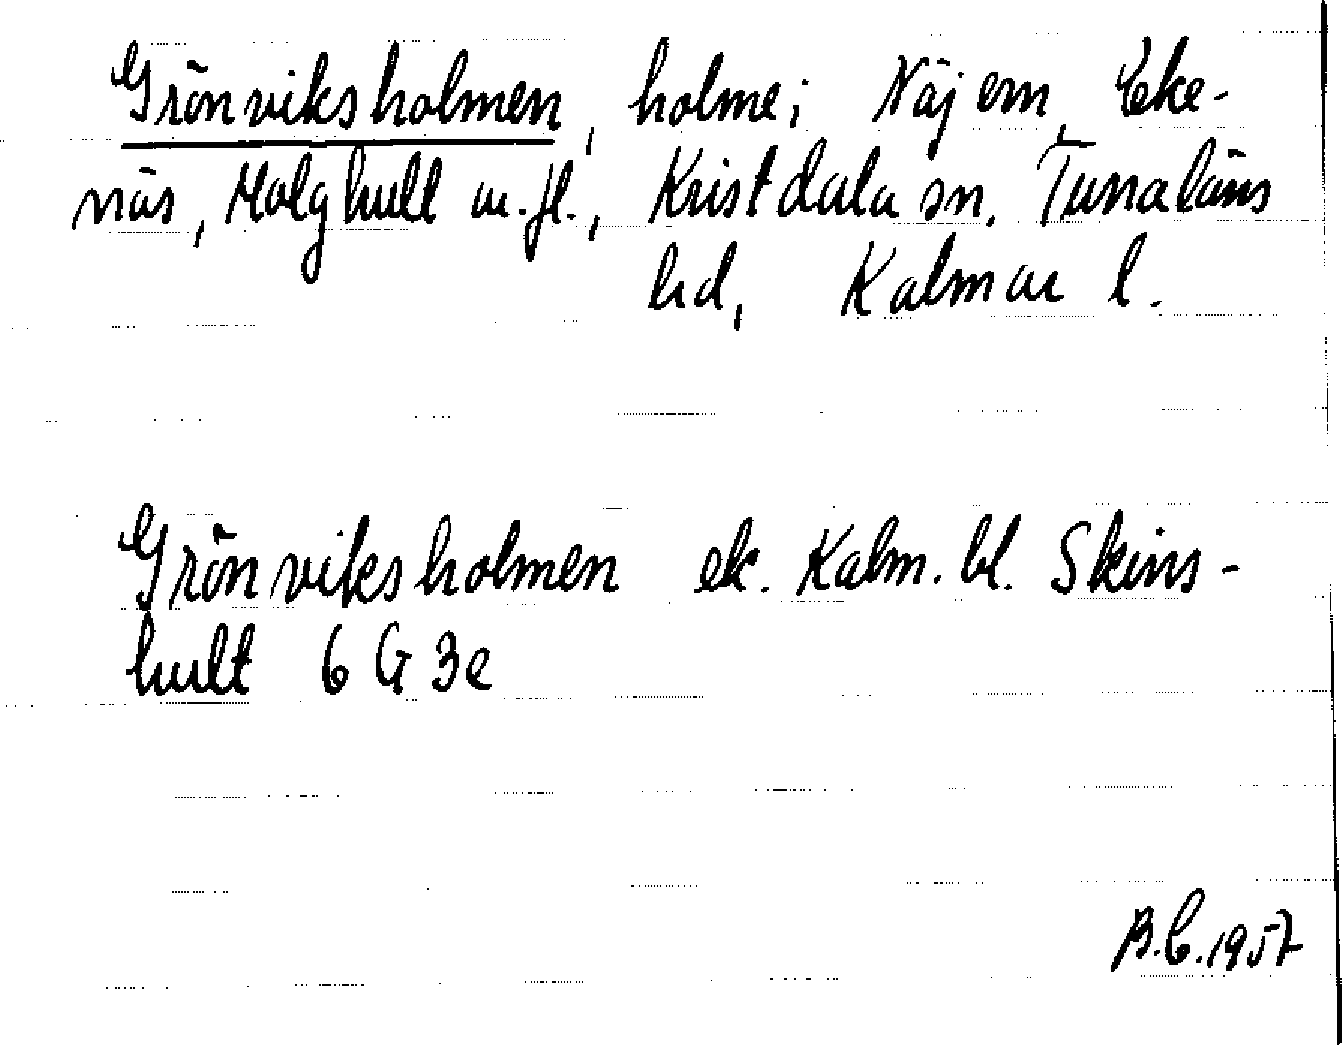 Grönviksholmen, holme i Näjern, Eke-
näs, Mölghult m.fl., Kristdala sn, Tunaläns
hd, Kalmar l.
Grönviksholmen ek. Kalm. bl. Skins-
hult 6 G 3e
B.E. 1957